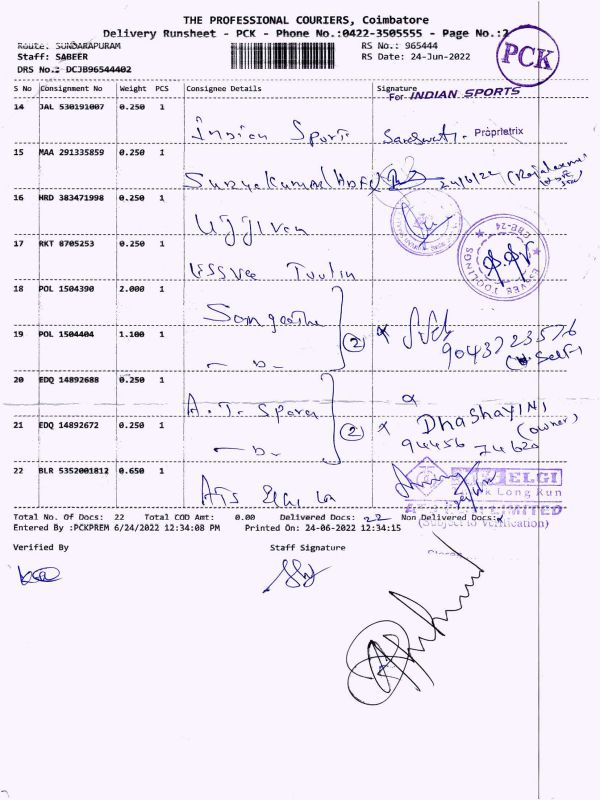 THE PROFESSIONAL COURIERS, Coimbatore
Delivery Runsheet - PCK - Phone No.:0422-3505555 - Page No.:2
Route: SUNDARAPURAM
RS No.: 965444
Staff: SABEER
RS Date: 24-Jun-2022
DRS No.: DCJB96544402
PCK
S No Consignment No Weight PCS Consignee Details Signature
For INDIAN SPORTS
14 JAL 530191007 0.250 1 Indian Sports Proprietrix
15 MAA 291335859 0.250 1 24/6/22
16 HRD 383471998 0.250 1 Ujjiven
17 RKT 8705253 0.250 1
ESSVEE TOOLINGS
CBE-24
18 POL 1504390 2.000 1 Sangeetha
19 POL 1504404 1.100 1 2 9043723576
(Self)
20 EDQ 14892688 0.250 1 A.T. Spares
21 EDQ 14892672 0.250 1 2 DhaShayini
(owner)
94456 74620
22 BLR 5352001812 0.650 1 ELGI
LIMITED
(Subject to Verification)
Total No. Of Docs: 22 Total COD Amt: 0.00 Delivered Docs: 22 Non Delivered Docs:
Entered By :PCKPREM 6/24/2022 12:34:08 PM Printed On: 24-06-2022 12:34:15
Verified By Staff Signature